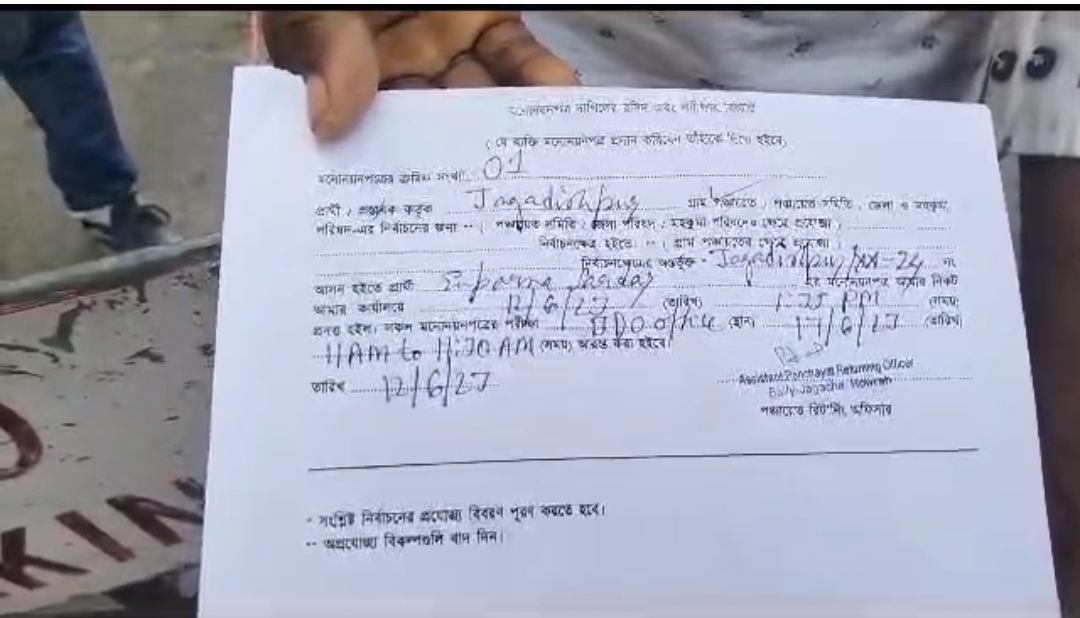 মনোনয়নপত্র দাখিলের রসিদ এবং পরীক্ষার
( যে ব্যক্তি মনোনয়নপত্র প্রদান করিবেন তাঁহাকে দিতে হইবে)
মনোনয়নপত্রের ক্রমিক সংখ্যা 01
প্রার্থী / প্রস্তাবক কর্তৃক Jagadishpur গ্রাম পঞ্চায়েত / পঞ্চায়েত সমিতি, জেলা ও মহকুমা
পরিষদ-এর নির্বাচনের জন্য -- ( পঞ্চায়েত সমিতি / জেলা পরিষদ / মহকুমা পরিষদের ক্ষেত্রে প্রযোজ্য )
নির্বাচনক্ষেত্র হইতে। -- ( গ্রাম পঞ্চায়েতের ক্ষেত্রে প্রযোজ্য )
নির্বাচনক্ষেত্রের অন্তর্ভুক্ত - Jagadishpur/ -24 নং
আসন হইতে প্রার্থী Suparna এর মনোনয়নপত্র আমার নিকট
আমার কার্যালয়ে 12/6/23 (তারিখ) 1:25 PM (সময়)
প্রদত্ত হইল। সকল মনোনয়নপত্রের পরীক্ষা BDO office (স্থান) 17/6/23 (তারিখ)
11 AM to 11:30 AM (সময়) আরম্ভ করা হইবে।
তারিখ 12/6/23
Assistant Panchayat Returning Officer
Bally-Jagacha, Howrah
পঞ্চায়েত রিটার্নিং অফিসার
- সংশ্লিষ্ট নির্বাচনের প্রযোজ্য বিবরণ পূরণ করতে হবে।
-- অপ্রযোজ্য বিকল্পগুলি বাদ দিন।
KIN